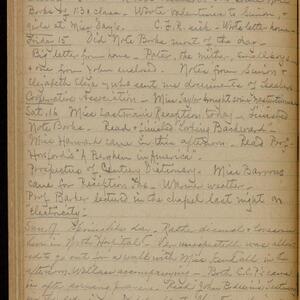 Books of 13a class. Wrote valentines to Simon &
girls at Miss Ray's. C.F.R. sick. Wrote letter home.
Feb. 15 Did Note Books most of the day
Big letter from home - Pater, the mither,
& one from John enclosed. Notes from Simon &
Elizabeth who sent me documents of
Association - Miss bought some
Sat. 16 Miss Eastman's Reception today - finished
Note Books. Read & finished Looking Backward -
Miss Hayward came in this afternoon. Read Prof.
Horsford's "A Problem in America".
Prospectus of Century Dictionary. Miss Barrows
came for Reception. Warm weather -
Prof. Barker lectured in the chapel last night on
electricity.
Sun. 17. day - Rather dismal &
here in North Hospital. unexpectedly was allowed
to go out for a walk with Miss Kendall in the
afternoon Wallace accompanying - Both C.C.P's came
in after evening prayers. Read John